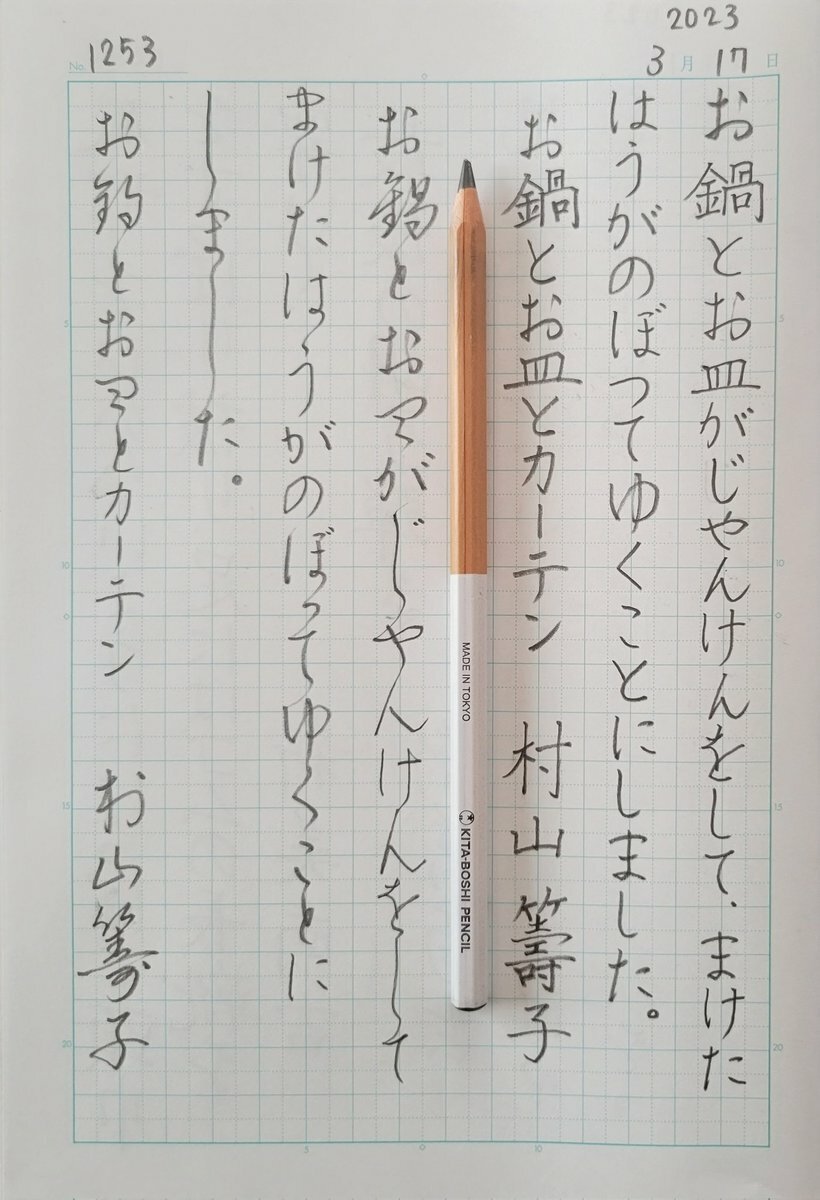 2023
3月17日
No. 1253
お鍋とお皿がじやんけんをして、まけた
はうがのぼつてゆくことにしました。
お鍋とお皿とカーテン 村山籌子
MADE IN TOKYO
KITA-BOSHI PENCIL
お鍋とお皿がじやんけんをして
まけたはうがのぼつてゆくことに
しました。
お鍋とお皿とカーテン 村山籌子
5
10
15
20
0
5
10
15
20
0
0
5
0
10